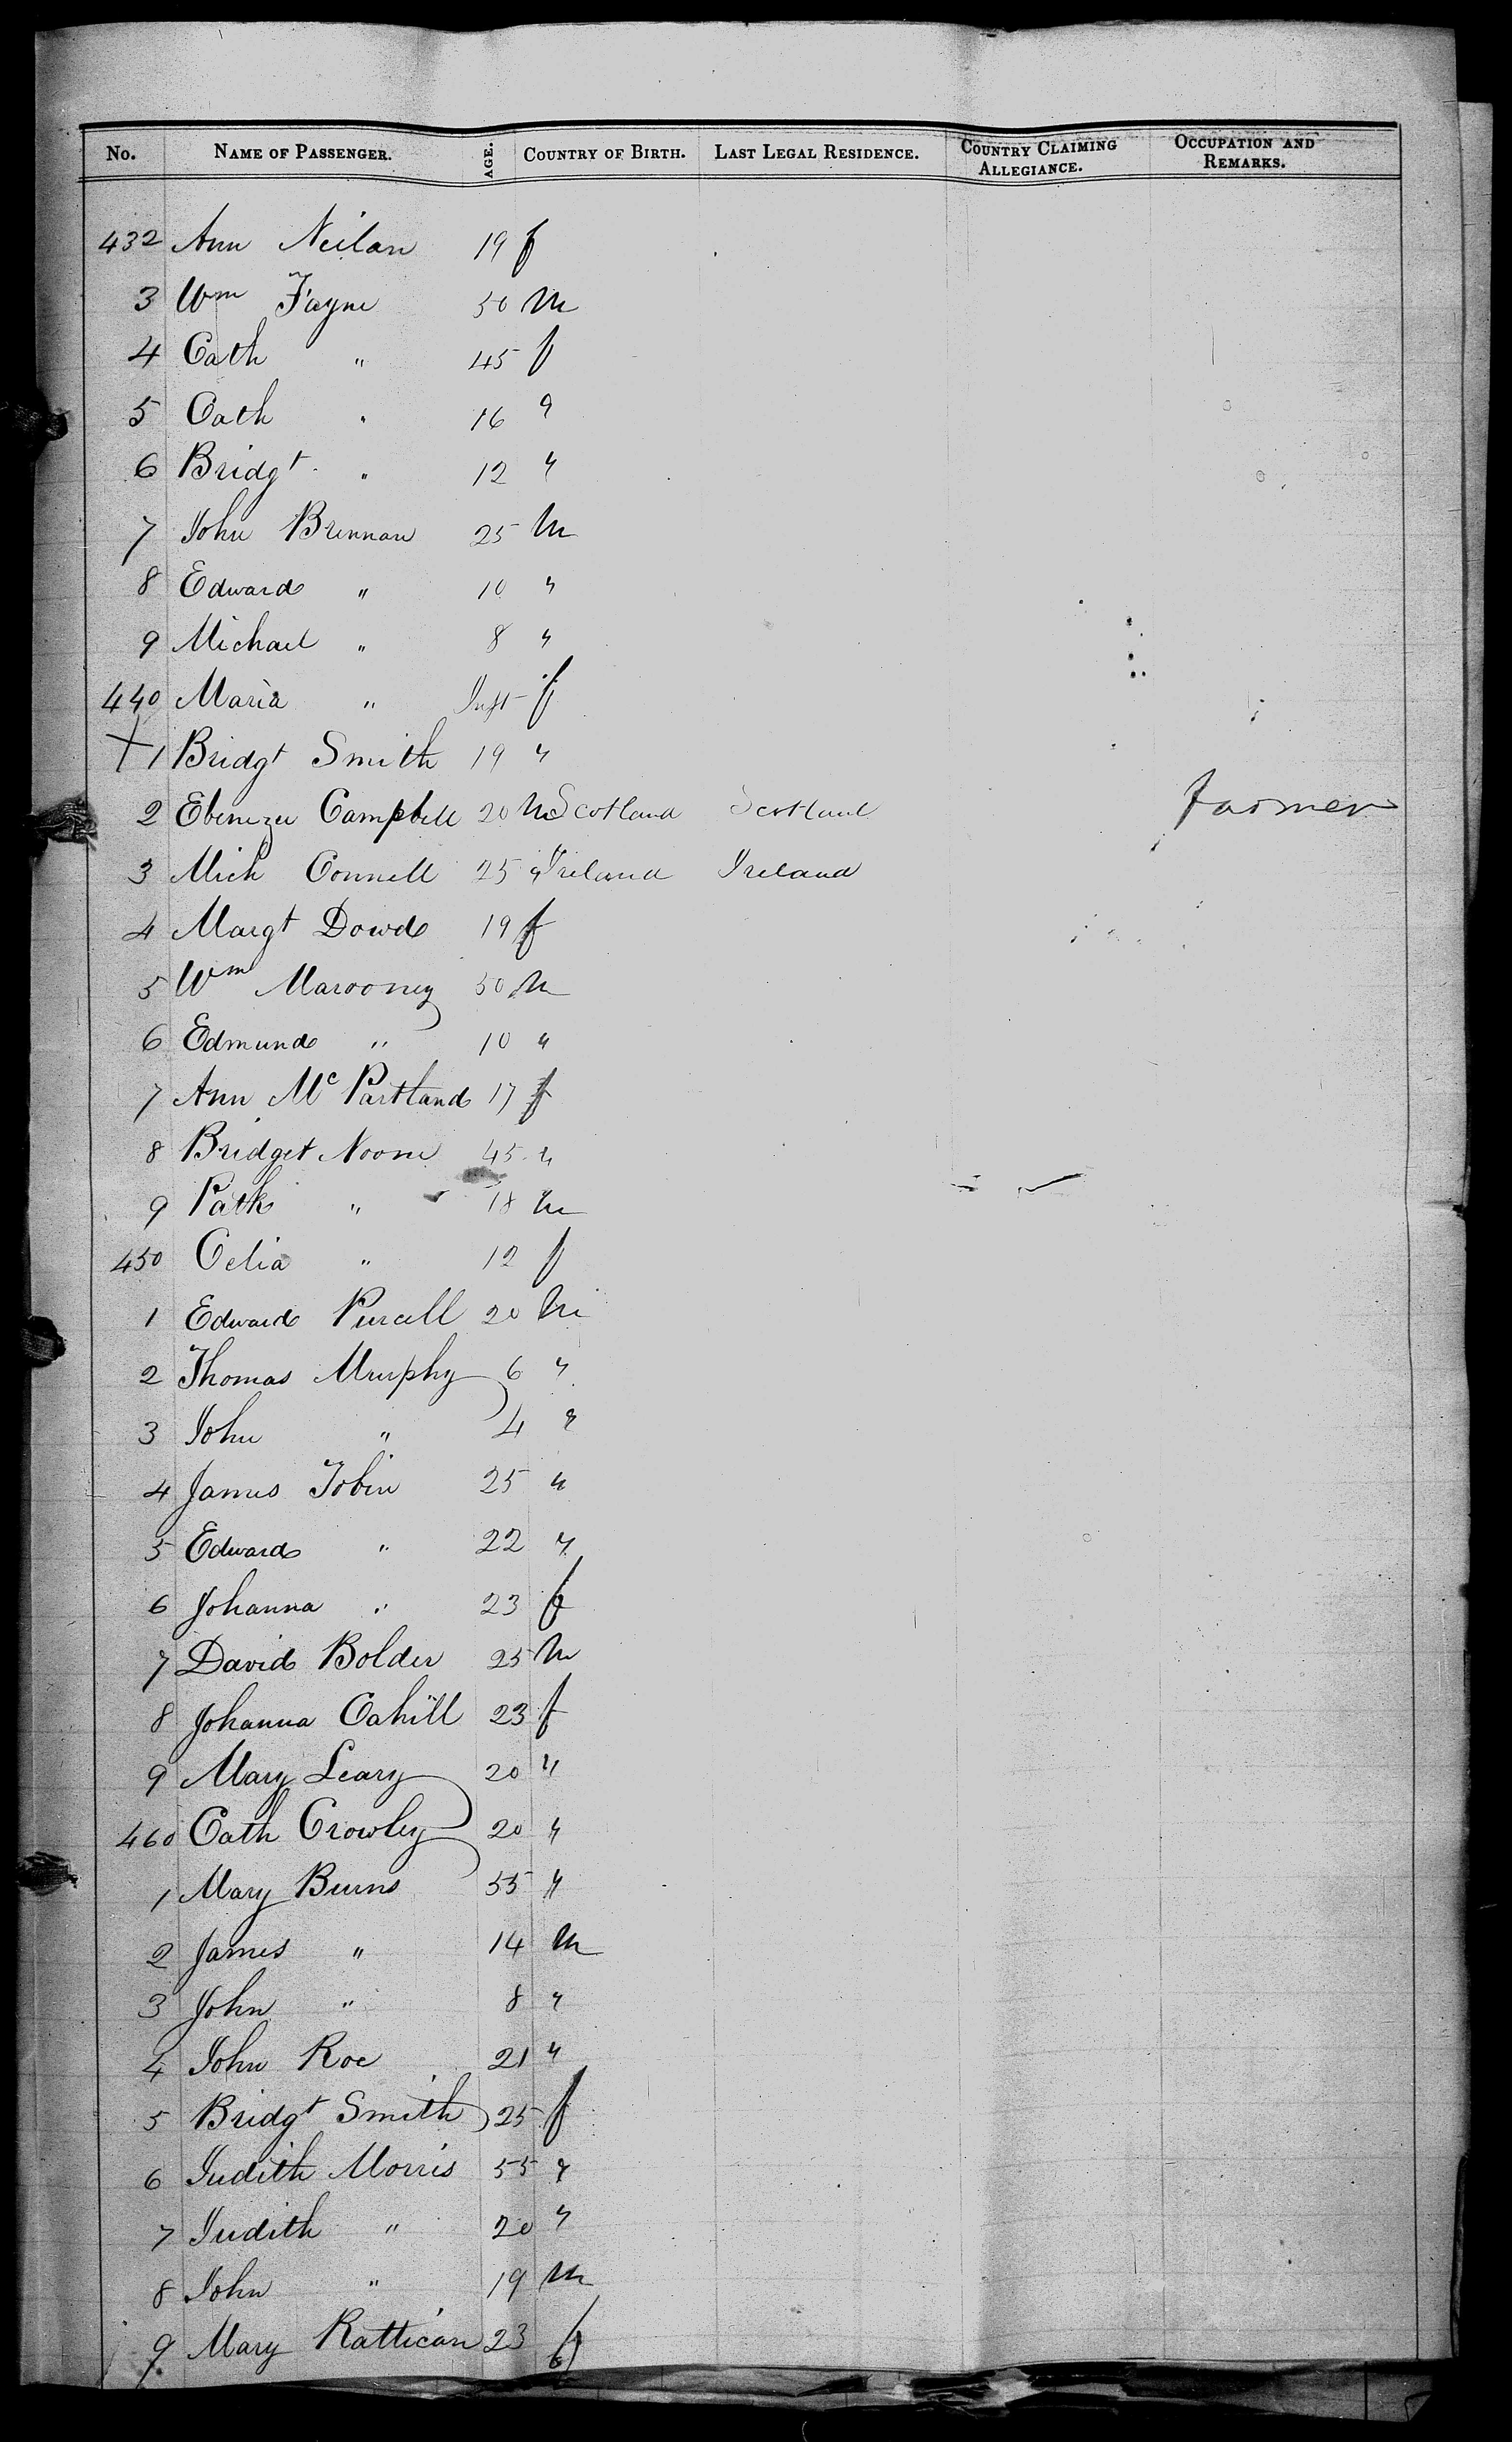 No. NAME OF PASSENGER. AGE. COUNTRY OF BIRTH. LAST LEGAL RESIDENCE. COUNTRY CLAIMING ALLEGIANCE. OCCUPATION AND REMARKS.
432 Ann Neilan 19 f
3 Wm Fayne 50 m
4 Cath " 45 f
5 Cath " 16 "
6 Bridgt " 12 "
7 John Brennan 25 m
8 Edward " 10 "
9 Michael " 8 "
440 Maria " Inft f
X 1 Bridgt Smith 19 "
2 Ebenezer Campbell 20 m Scotland Scotland Farmer
3 Mich Connell 25 " Ireland Ireland
4 Margt Dowd 19 f
5 Wm Marooney 50 m
6 Edmund " 10 "
7 Ann Mc Partland 17 f
8 Bridget Noone 45 "
9 Patk " 18 m
450 Celia " 12 f
1 Edward Purcell 20 m
2 Thomas Murphy 6 "
3 John " 4 "
4 James Tobin 25 "
5 Edward " 22 "
6 Johanna " 23 f
7 David Bolder 25 m
8 Johanna Cahill 23 f
9 Mary Leary 20 "
460 Cath Crowley 20 "
1 Mary Burns 55 "
2 James " 14 m
3 John " 8 "
4 John Roe 21 "
5 Bridgt Smith 25 f
6 Judith Morris 55 "
7 Judith " 20 "
8 John " 19 m
9 Mary Rattican 23 f